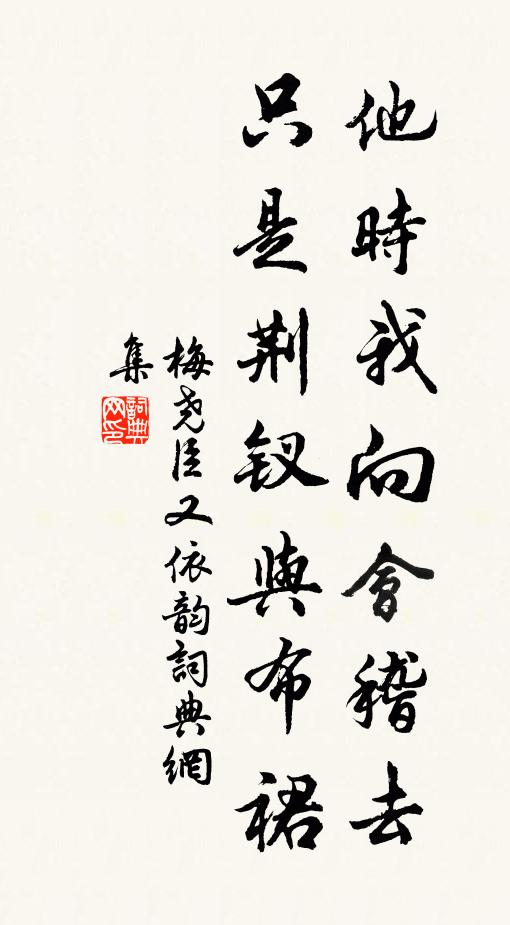 他時我向會稽去
只是荆釵與布裙
梅堯臣又依韵詞典網
集
詞典
网印